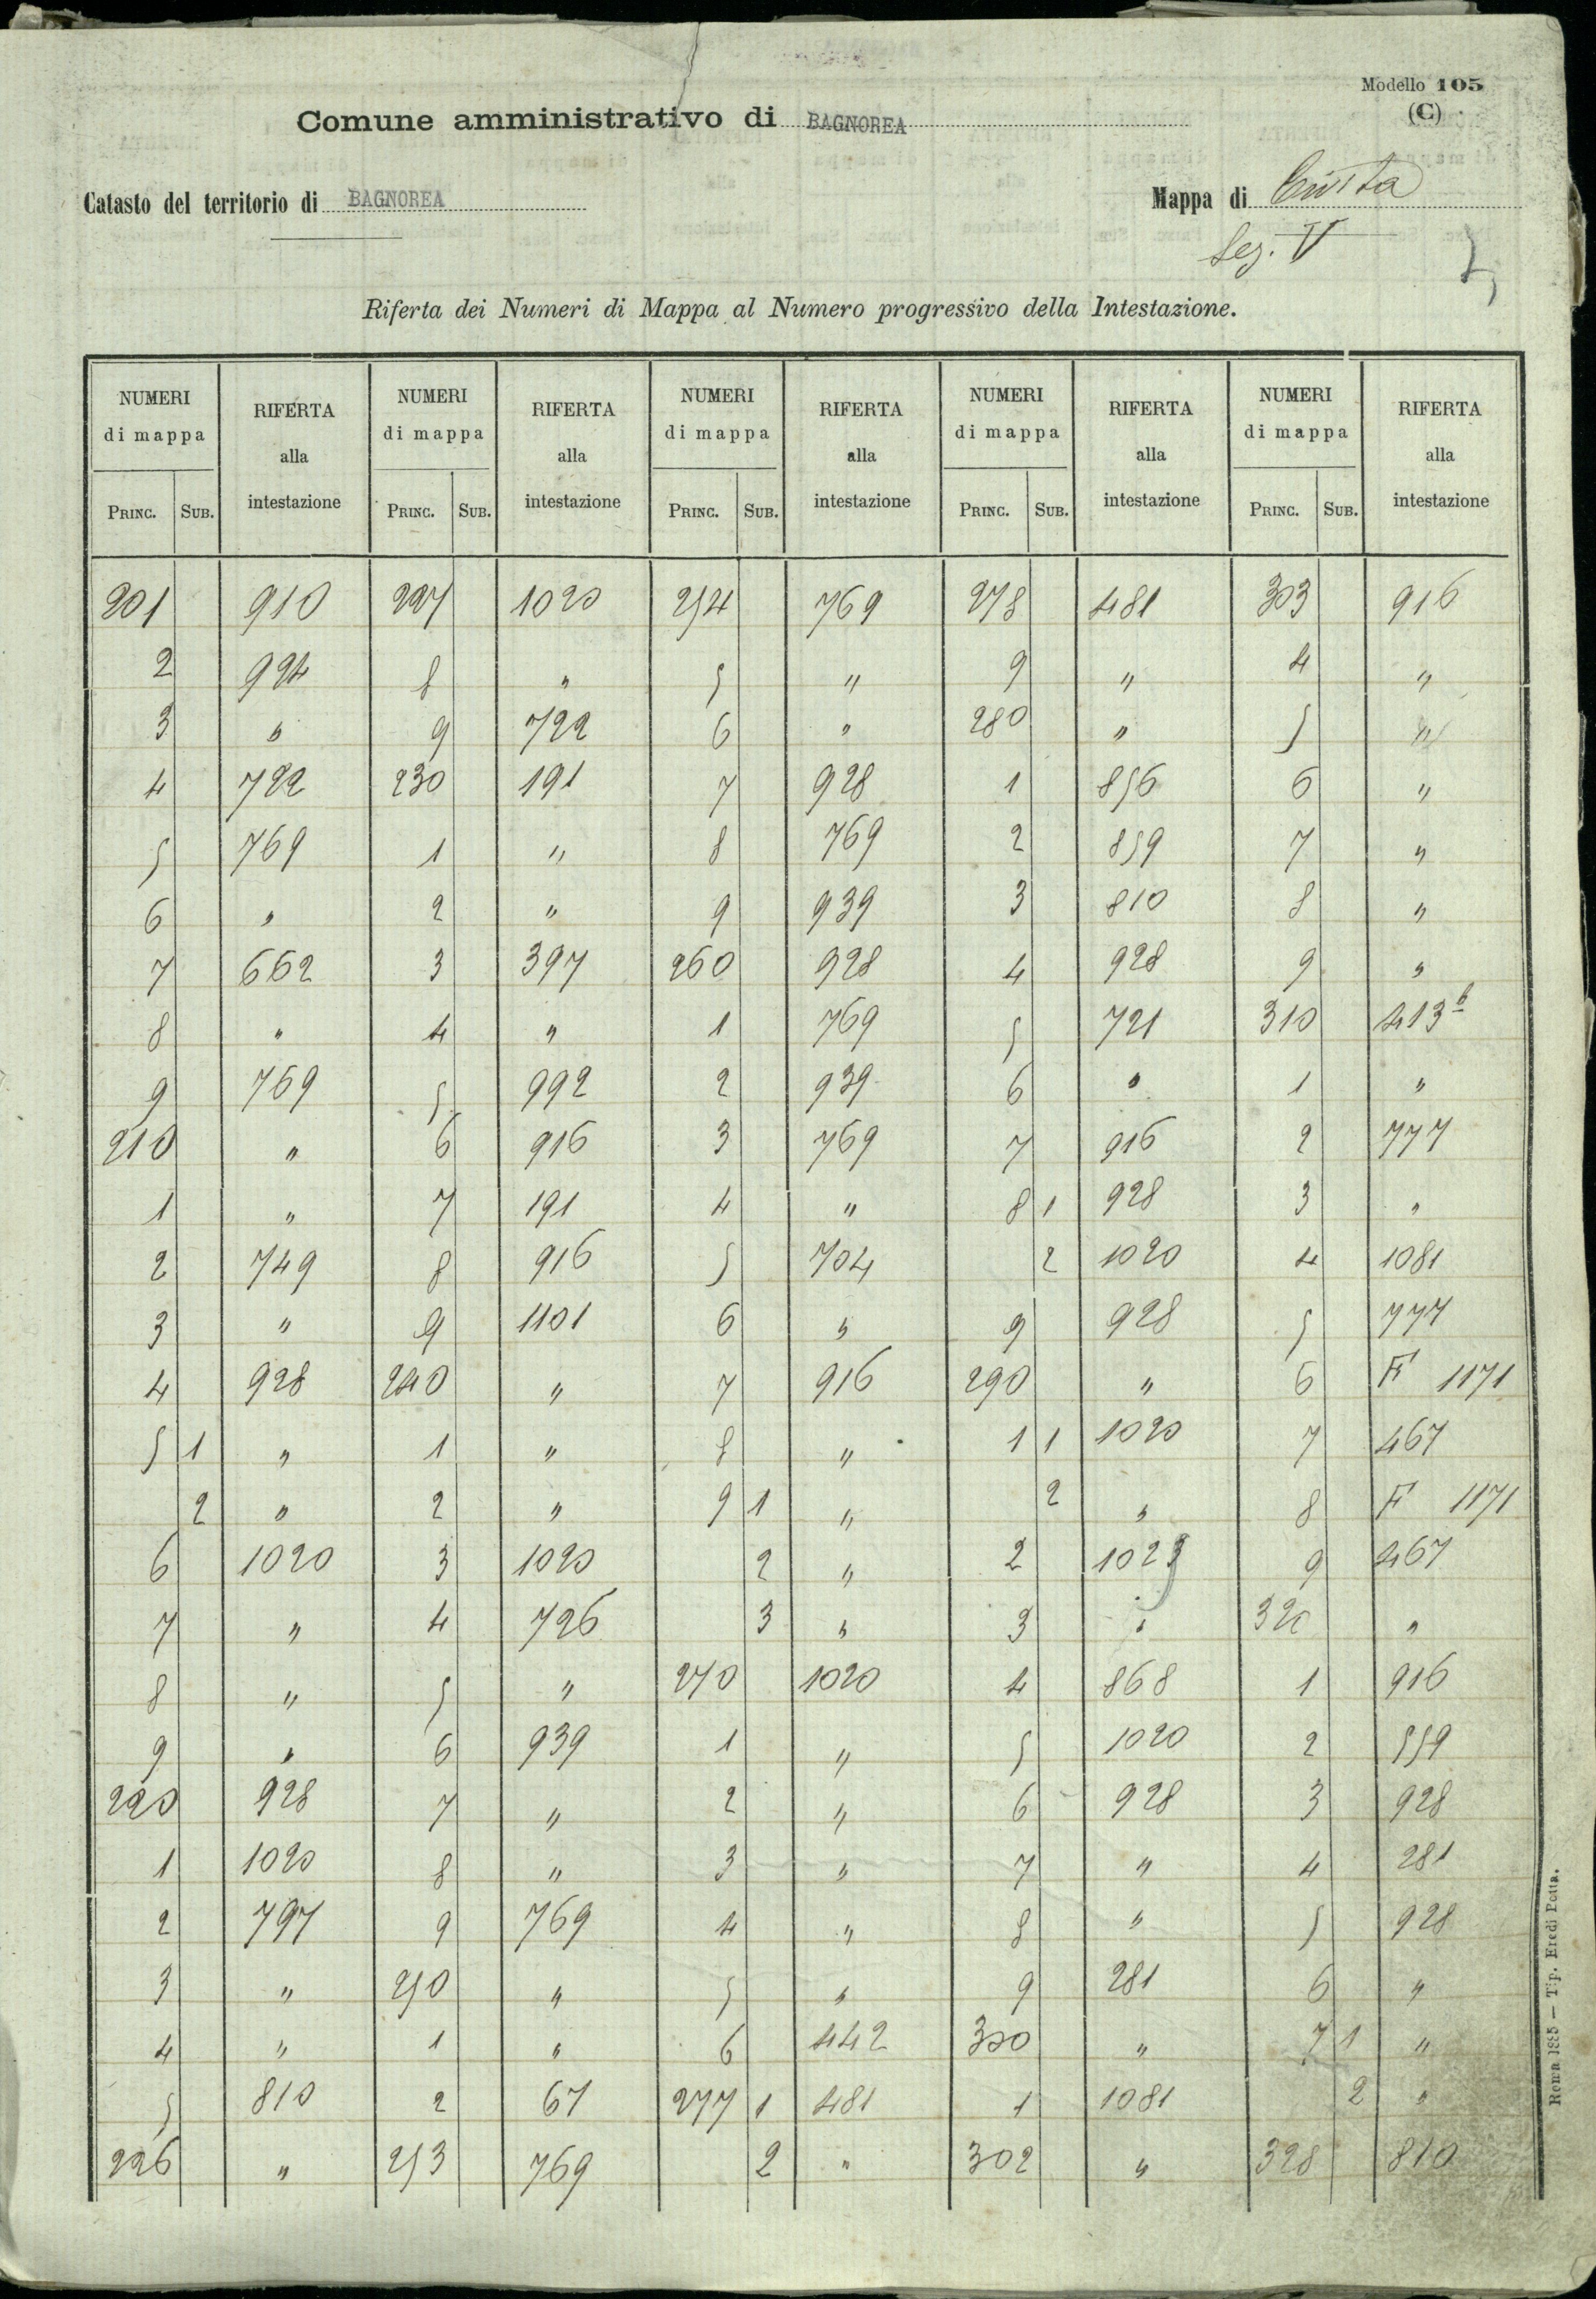 Modello 105
(C)
Comune amministrativo di BAGNOREA
Catasto del territorio di BAGNOREA Mappa di Civita
Sez. V
5
Riferta dei Numeri di Mappa al Numero progressivo della Intestazione.
NUMERI di mappa RIFERTA alla intestazione NUMERI di mappa RIFERTA alla intestazione NUMERI di mappa RIFERTA alla intestazione NUMERI di mappa RIFERTA alla intestazione NUMERI di mappa RIFERTA alla intestazione
PRINC. SUB. PRINC. SUB. PRINC. SUB. PRINC. SUB. PRINC. SUB.
201 910 227 1020 254 769 278 481 303 916
2 924 8 " 5 " 9 " 4 "
3 " 9 722 6 " 280 " 5 "
4 722 230 191 7 928 1 856 6 "
5 769 1 " 8 769 2 859 7 "
6 " 2 " 9 939 3 810 8 "
7 662 3 397 260 928 4 928 9 "
8 " 4 " 1 769 5 721 310 413 b
9 769 5 992 2 939 6 " 1 "
210 " 6 916 3 769 7 916 2 777
1 " 7 191 4 " 8 1 928 3 "
2 749 8 916 5 704 2 1020 4 1081
3 " 9 1101 6 " 9 928 5 777
4 928 240 " 7 916 290 " 6 F 1171
5 1 " 1 " 8 " 1 1 1020 7 467
2 " 2 " 9 1 " 2 " 8 F 1171
6 1020 3 1020 2 " 2 1023 9 467
7 " 4 726 3 " 3 " 320 "
8 " 5 " 270 1020 4 868 1 916
9 " 6 939 1 " 5 1020 2 559
220 928 7 " 2 " 6 928 3 928
1 1020 8 " 3 " 7 " 4 281
2 797 9 769 4 " 8 " 5 928
3 " 250 " 5 " 9 281 6 "
4 " 1 " 6 442 300 " 7 1 "
5 810 2 67 277 1 481 1 1081 2 "
226 " 253 769 2 " 302 " 328 810
Roma 1885 — Tip. Eredi Botta.